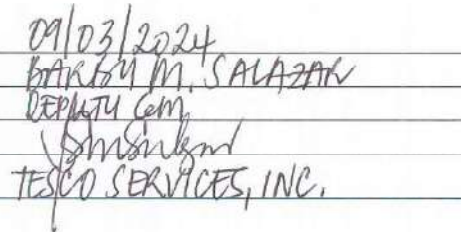 09/03/2024
BARBY M. SALAZAR
DEPUTY GM
TESCO SERVICES, INC.